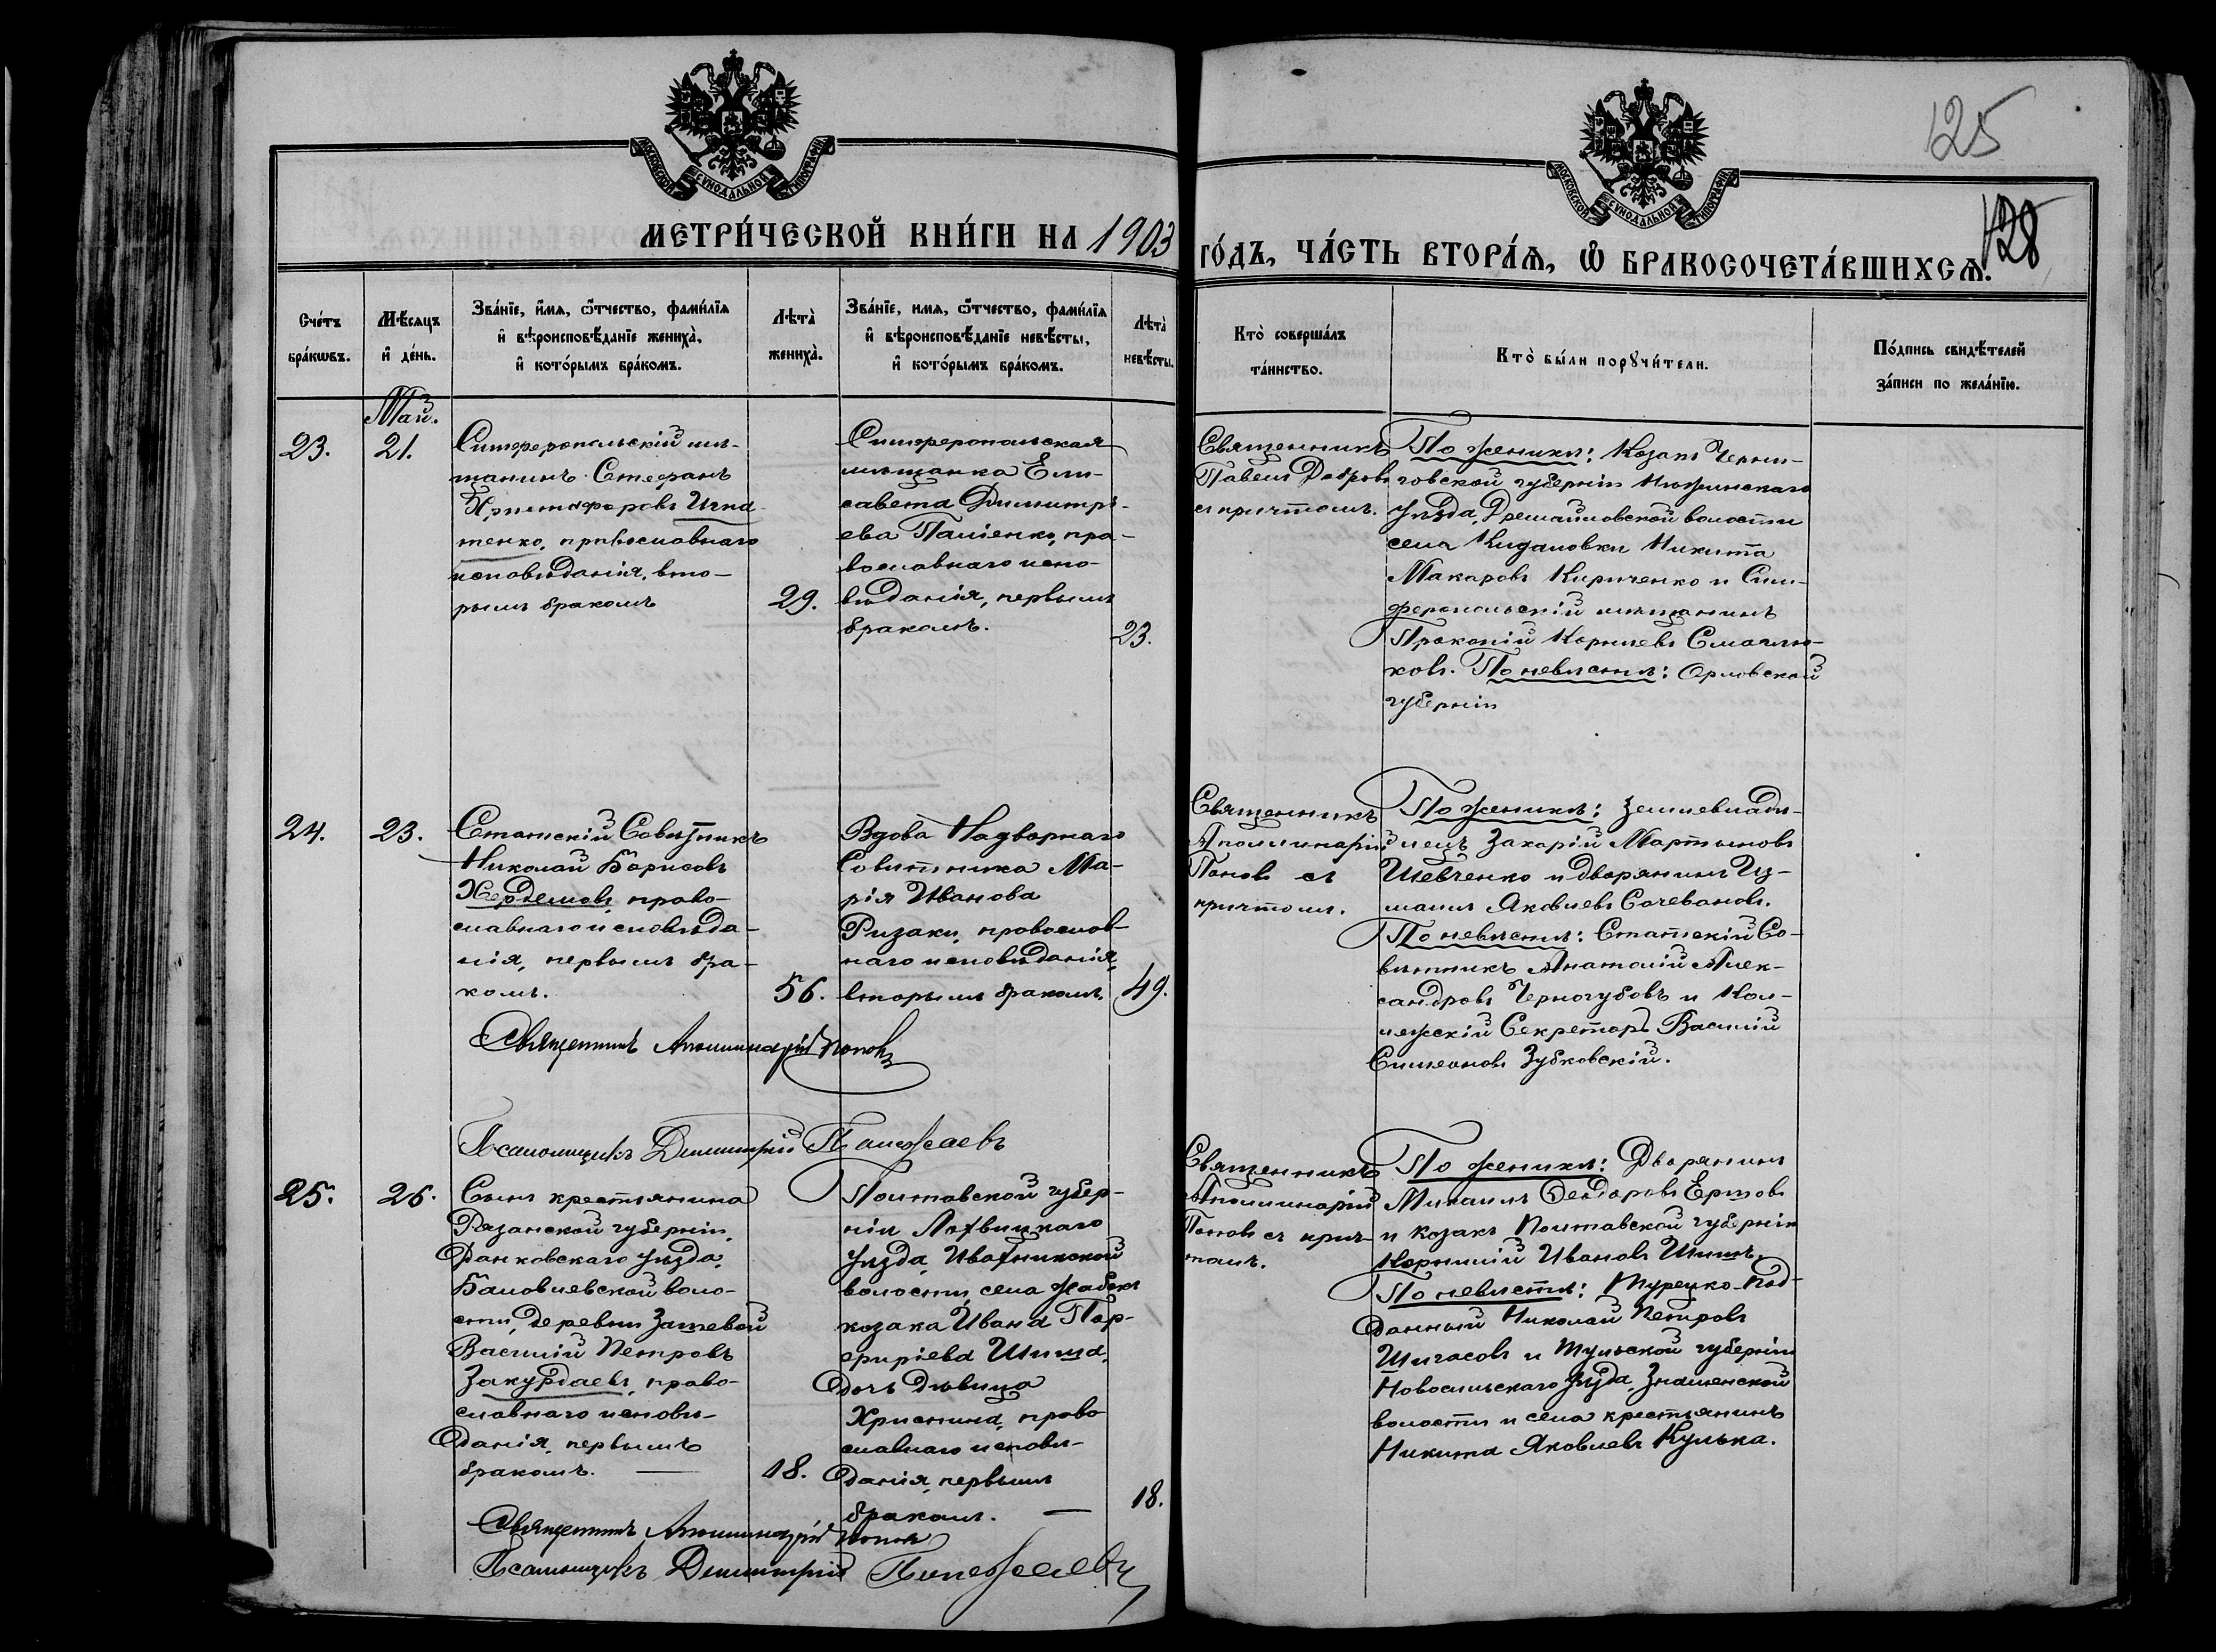 125
128
МОСКОВСКОЙ СѴНОДАЛЬНОЙ ТИПОГРАФІИ
МОСКОВСКОЙ СѴНОДАЛЬНОЙ ТИПОГРАФІИ
МЕТРИ́ЧЕСКОЙ КНИ́ГИ НА 1903
ГО́ДЪ, ЧА́СТЬ ВТОРА́Ѧ, Ѡ БРАКОСОЧЕТА́ВШИХСѦ.
Сче́тъ
бра́кѡвъ.
Мѣ́сяцъ
и де́нь.
Зва́нїе, и́мѧ, ѻ́тчество, фами́лїѧ
и вѣроисповѣ́данїе жениха̀,
и кото́рымъ бра́комъ.
Лѣта̀
жениха̀.
Зва́нїе, имѧ, ѻ́тчество, фами́лїѧ
и вѣроисповѣ́данїе невѣ́сты,
и кото́рымъ бра́комъ.
Лѣта̀
невѣ́сты.
Кто̀ соверша́лъ
та́инство.
Кто̀ бы́ли порꙋчи́тели.
По́дпись свидѣ́телей
за́писи по жела́нїю.
Май.
23.
21.
Симферопольскій мѣ-
щанинъ Стефанъ
Христофоровъ Игна-
тенко, православнаго
исповѣданія, вто-
рымъ бракомъ
29.
Симферопольская
мѣщанка Ели-
савета Димитрі-
ева Паліенко, пра-
вославнаго испо-
вѣданія, первымъ
бракомъ.
23.
Священникъ
Павелъ Добров
съ причтомъ.
По женихѣ: Козакъ Черни-
говской губерніи Нѣжинскаго
уѣзда, Дремайловской волости
села Кидаловки Никита
Макаровъ Кириченко и Сим-
феропольскій мѣщанинъ
Прокопій Корнилевъ Смаглю-
ковъ. По невѣстѣ: Орловской
губерніи
24.
23.
Статскій Совѣтникъ
Николай Борисовъ
Жердемовъ, право-
славнаго исповѣда-
нія, первымъ бра-
комъ.
56.
Вдова Надворнаго
Совѣтника Ма-
рія Иванова
Ризаки, православ-
наго исповѣданія,
вторымъ бракомъ,
49.
Священникъ
Аполлинарій
Поповъ съ
причтомъ.
По женихѣ: Землевладѣ-
лецъ Захарій Мартыновъ
Шевченко и дворянинъ Из-
маилъ Яковлевъ Сочевановъ.
По невѣстѣ: Статскій Со-
вѣтникъ Анатолій Алек-
сандровъ Черногубовъ и Кол-
лежскій Секретарь Василій
Симеоновъ Зубковскій.
Священникъ Аполлинарій Поповъ
Псаломщикъ Димитрій
25.
26.
Сынъ крестьянина
Рязанской губерніи,
Данковскаго уѣзда,
Баловлевской воло-
сти, деревни
Василій Петровъ
Закурдаевъ, право-
славнаго исповѣ-
данія, первымъ
бракомъ. —
18.
Полтавской губер-
ніи Лохвицкаго
уѣзда, Ивахникской
волости, села Жабокъ
козака Ивана Пор-
фиріева Шиша,
дочь дѣвица
Христина, право
славнаго исповѣ-
данія, первымъ
бракомъ. —
18.
Священникъ
Аполлинарій
Поповъ съ прич-
томъ.
По женихѣ: Дворянинъ
Михаилъ Ѳеодоровъ Ершовъ
и козакъ Полтавской губерніи
Корнилій Ивановъ Шишъ.
По невѣстѣ: Турецко-под-
данный Николай Петровъ
Шигасовъ и Тульской губерніи
Новосильскаго уѣзда, Знаменской
волости и села крестьянинъ
Никита Яковлевъ Кулька.
Священникъ Аполлинарій Поповъ
Псаломщикъ Димитрій